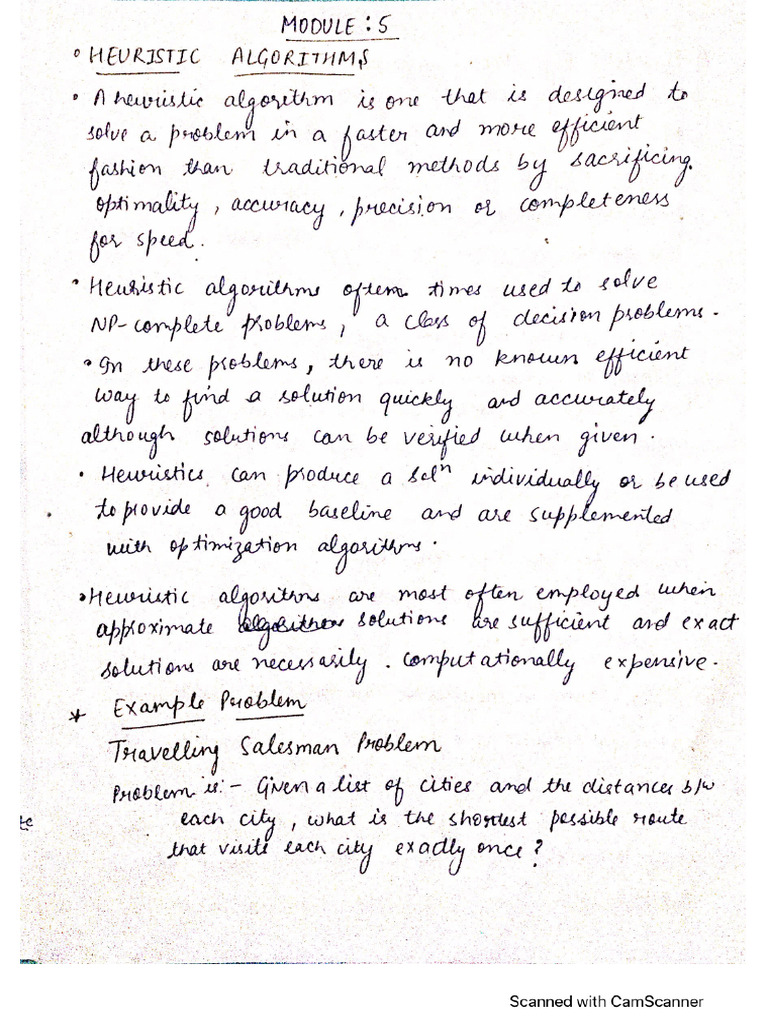 MODULE : 5
• HEURISTIC ALGORITHMS
• A heuristic algorithm is one that is designed to
solve a problem in a faster and more efficient
fashion than traditional methods by sacrificing
optimality, accuracy, precision or completeness
for speed.
• Heuristic algorithms often times used to solve
NP-complete problems, a class of decision problems.
• In these problems, there is no known efficient
way to find a solution quickly and accurately
although solutions can be verified when given.
• Heuristics can produce a solⁿ individually or be used
to provide a good baseline and are supplemented
with optimization algorithms.
• Heuristic algorithms are most often employed when
approximate solutions are sufficient and exact
solutions are necessarily . computationally expensive.
* Example Problem
Travelling Salesman Problem
Problem is:- Given a list of cities and the distances b/w
each city, what is the shortest possible route
that visits each city exactly once?
te
Scanned with CamScanner